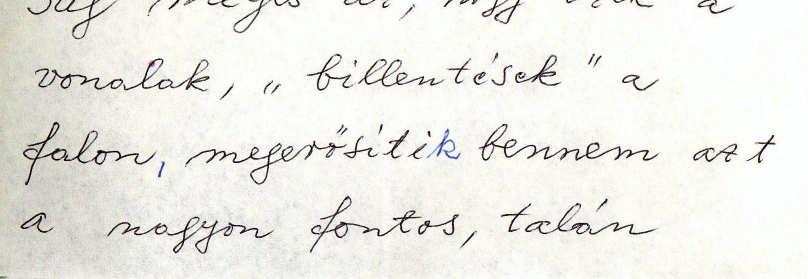 mégis az, hogy ezek a
vonalak, „billentések” a
falon, megerősítik bennem azt
a nagyon fontos, talán